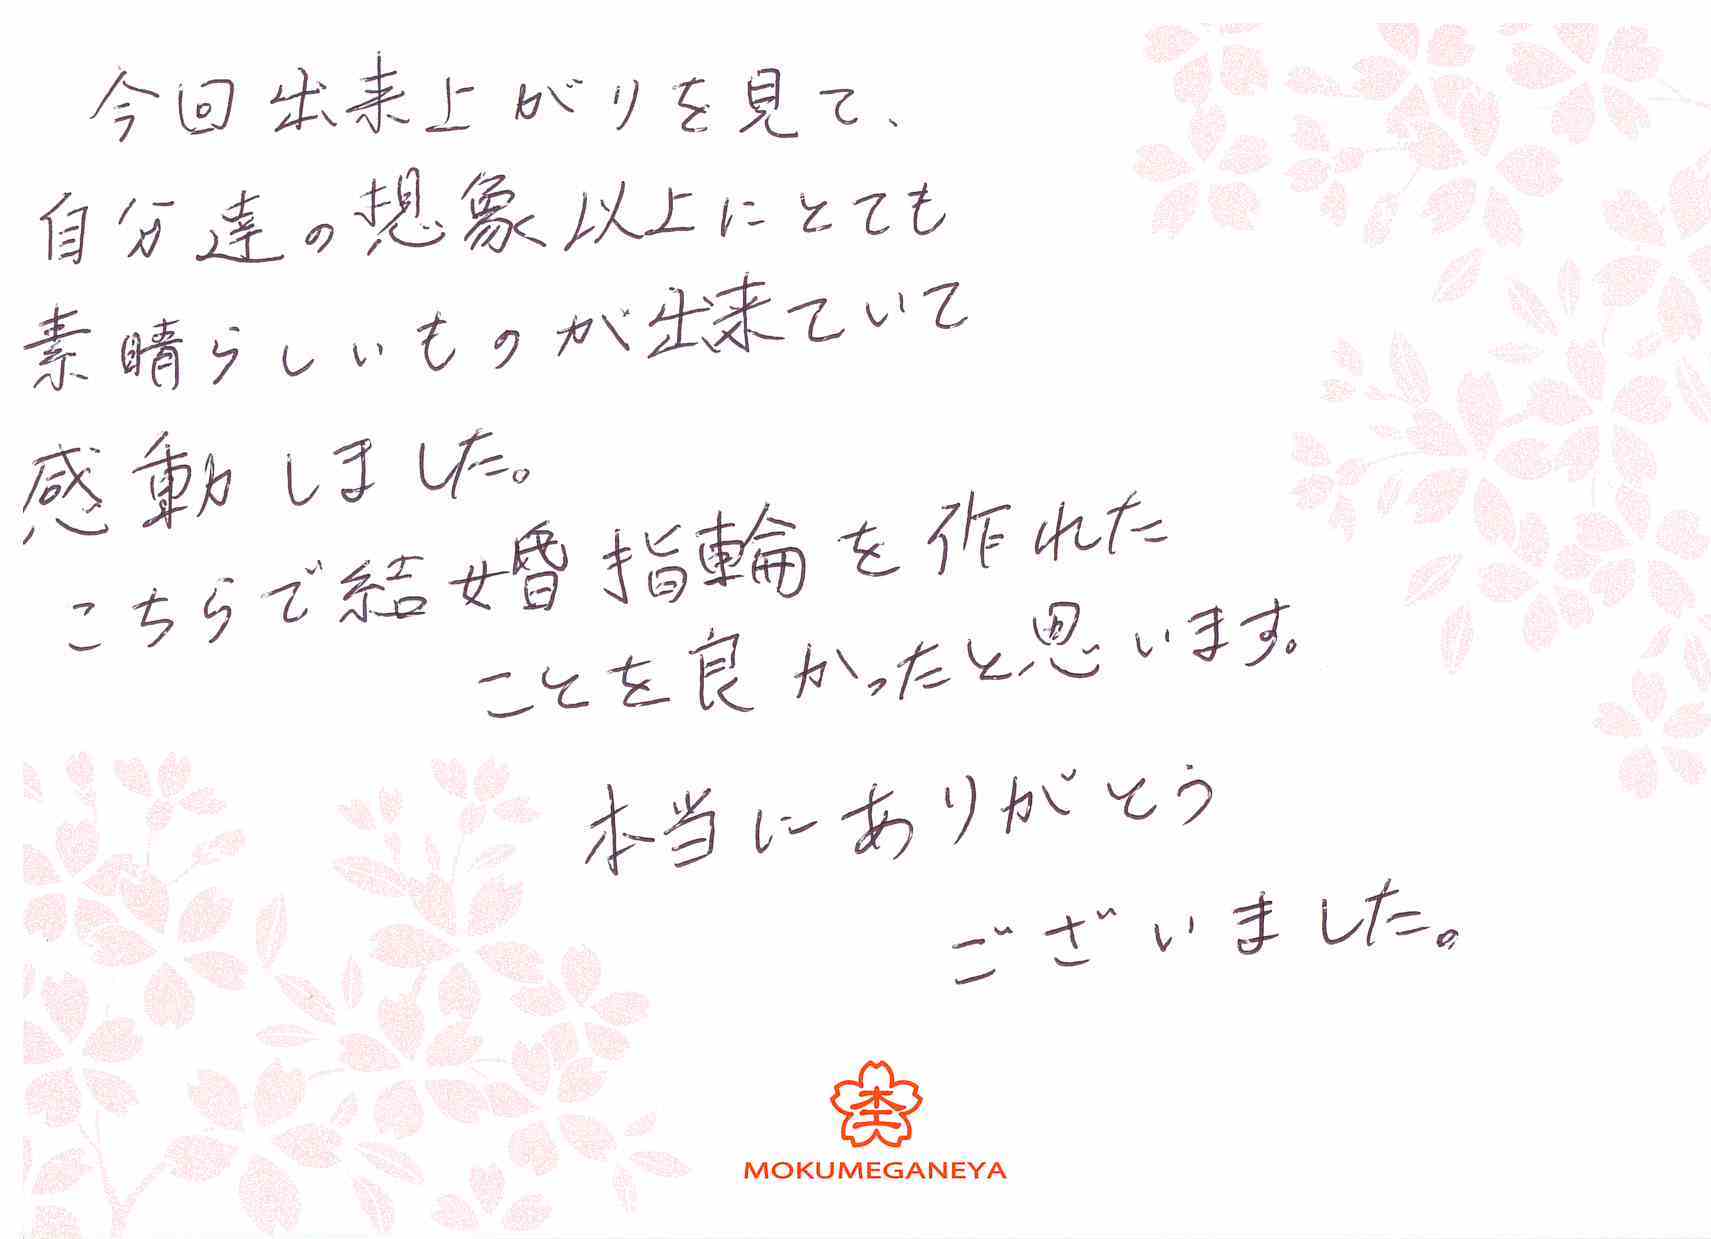 今回出来上がりを見て、
自分達の想象以上にとても
素晴らしいものが出来ていて
感動しました。
こちらで結婚指輪を作れた
ことを良かったと思います。
本当にありがとう
ございました。
杢
MOKUMEGANEYA